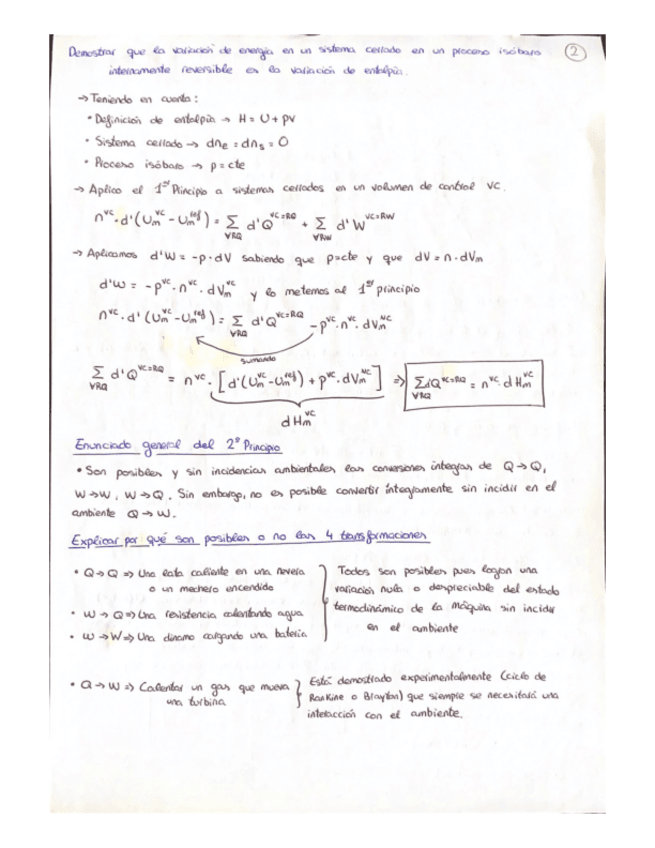 Demostrar que la variación de energía en un sistema cerrado en un proceso isóbaro
②
internamente reversible es la variación de entalpía.
→ Teniendo en cuenta:
• Definición de entalpía → H = U + pV
• Sistema cerrado → dnₑ = dnₛ = 0
• Proceso isóbaro → p = cte
→ Aplico el 1er Principio a sistemas cerrados en un volumen de control VC.
n^VC · d'(Um^VC - Um^ref) = Σ∀RQ d'Q^VC=RQ + Σ∀RW d'W^VC=RW
→ Aplicamos d'W = -p · dV sabiendo que p=cte y que dV = n · dVm
d'W = -p^VC · n^VC · dVm^VC y lo metemos al 1er principio
n^VC · d'(Um^VC - Um^ref) = Σ∀RQ d'Q^VC=RQ - p^VC · n^VC · dVm^VC
sumando
Σ∀RQ d'Q^VC=RQ = n^VC · [d'(Um^VC - Um^ref) + p^VC · dVm^VC] ⇒ Σ∀RQ dQ^VC=RQ = n^VC · dHm^VC
dHm^VC
Enunciado general del 2º Principio
• Son posibles y sin incidencias ambientales las conversiones íntegras de Q→Q,
W→W, W→Q. Sin embargo, no es posible convertir íntegramente sin incidir en el
ambiente Q→W.
Explicar por qué son posibles o no las 4 transformaciones
• Q→Q ⇒ Una lata caliente en una nevera
o un mechero encendido
• W→Q ⇒ Una resistencia calentando agua
• W→W ⇒ Una dinamo cargando una batería
Todos son posibles pues logran una
variación nula o despreciable del estado
termodinámico de la máquina sin incidir
en el ambiente
• Q→W ⇒ Calentar un gas que mueva
una turbina
Está demostrado experimentalmente (ciclo de
Rankine o Brayton) que siempre se necesitará una
interacción con el ambiente.